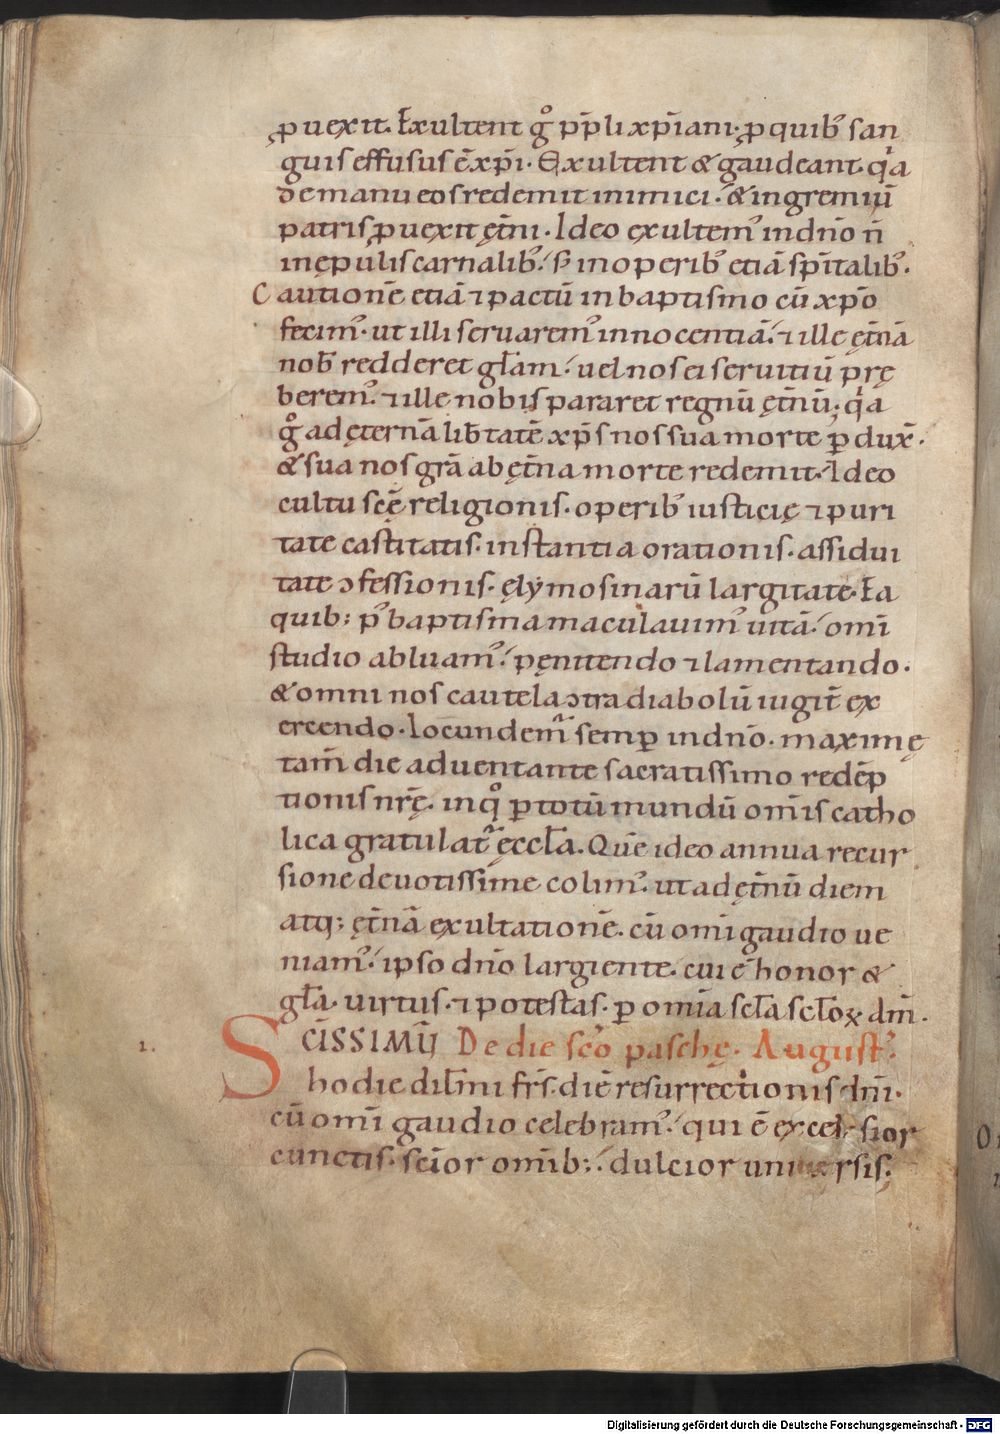 ꝓuexit. Exultent gͦ pp̄li xp̄iani. ꝓ quibꝰ san
guis effusus ē xp̄i. Exultent & gaudeant. qͥa
de manu eos redemit inimici. & in gremiū
patris ꝓuexit ęt̄ni. Ideo exultemꝰ in dn̄o n̄
in ępulis carnalibꝰ. sꝫ in operibꝰ etiā sp̄italibꝰ.
Cautionē etiā ⁊ pactū in baptismo cū xp̄o
fecimꝰ. ut illi seruaremꝰ innocentiā. ⁊ ille ęt̄nā
nob̄ redderet gl̄am. uel nos ei seruitiū prę
beremꝰ. ⁊ ille nobis pararet regnū ęt̄nū; qͥa
gͦ ad ęternā lib̄tatē xp̄s nos sua morte ꝑdux̄.
& sua nos gr̄a ab ęt̄na morte redemit. Ideo
cultu scę̄ religionis. operibꝰ iusticię ⁊ puri
tate castitatis. instantia orationis. assidui
tate ɔfessionis. ęlẏmosinarū largitate. Ea
quib; pꝰ baptisma maculauimꝰ uitā. om̄i
studio abluamꝰ. pęnitendo ⁊ lamentando.
& omni nos cautela ɔtra diabolū iugit̄ ex
ercendo. Iocundemᷓ semꝑ in dn̄o. maximę
tam̄ die aduentante sacratissimo redēp
tionis nr̄ę. in qͦ ꝑ totū mundū om̄is catho
lica gratulatᷓ ęccl̄a. Quē ideo annua recur
sione deuotissime colimꝰ. ut ad ęt̄nū diem
atq; ęt̄nā exultationē. cū om̄i gaudio ue
niamꝰ. ipso dn̄o largiente. cui ē honor &
gl̄a. uirtus. ⁊ potestas. ꝑ om̄ia scl̄a scl̄oꝝ am̄.
SC̄ISSIMŪ De die scō paschę. Augustꝰ.
1.
hodie dil̄mi fr̄s. diē resurrectionis dn̄i.
cū om̄i gaudio celebramꝰ. qui ē excelsior
cunctis. sc̄ior om̄ib;. dulcior uniuersis.
Digitalisierung gefördert durch die Deutsche Forschungsgemeinschaft - DFG